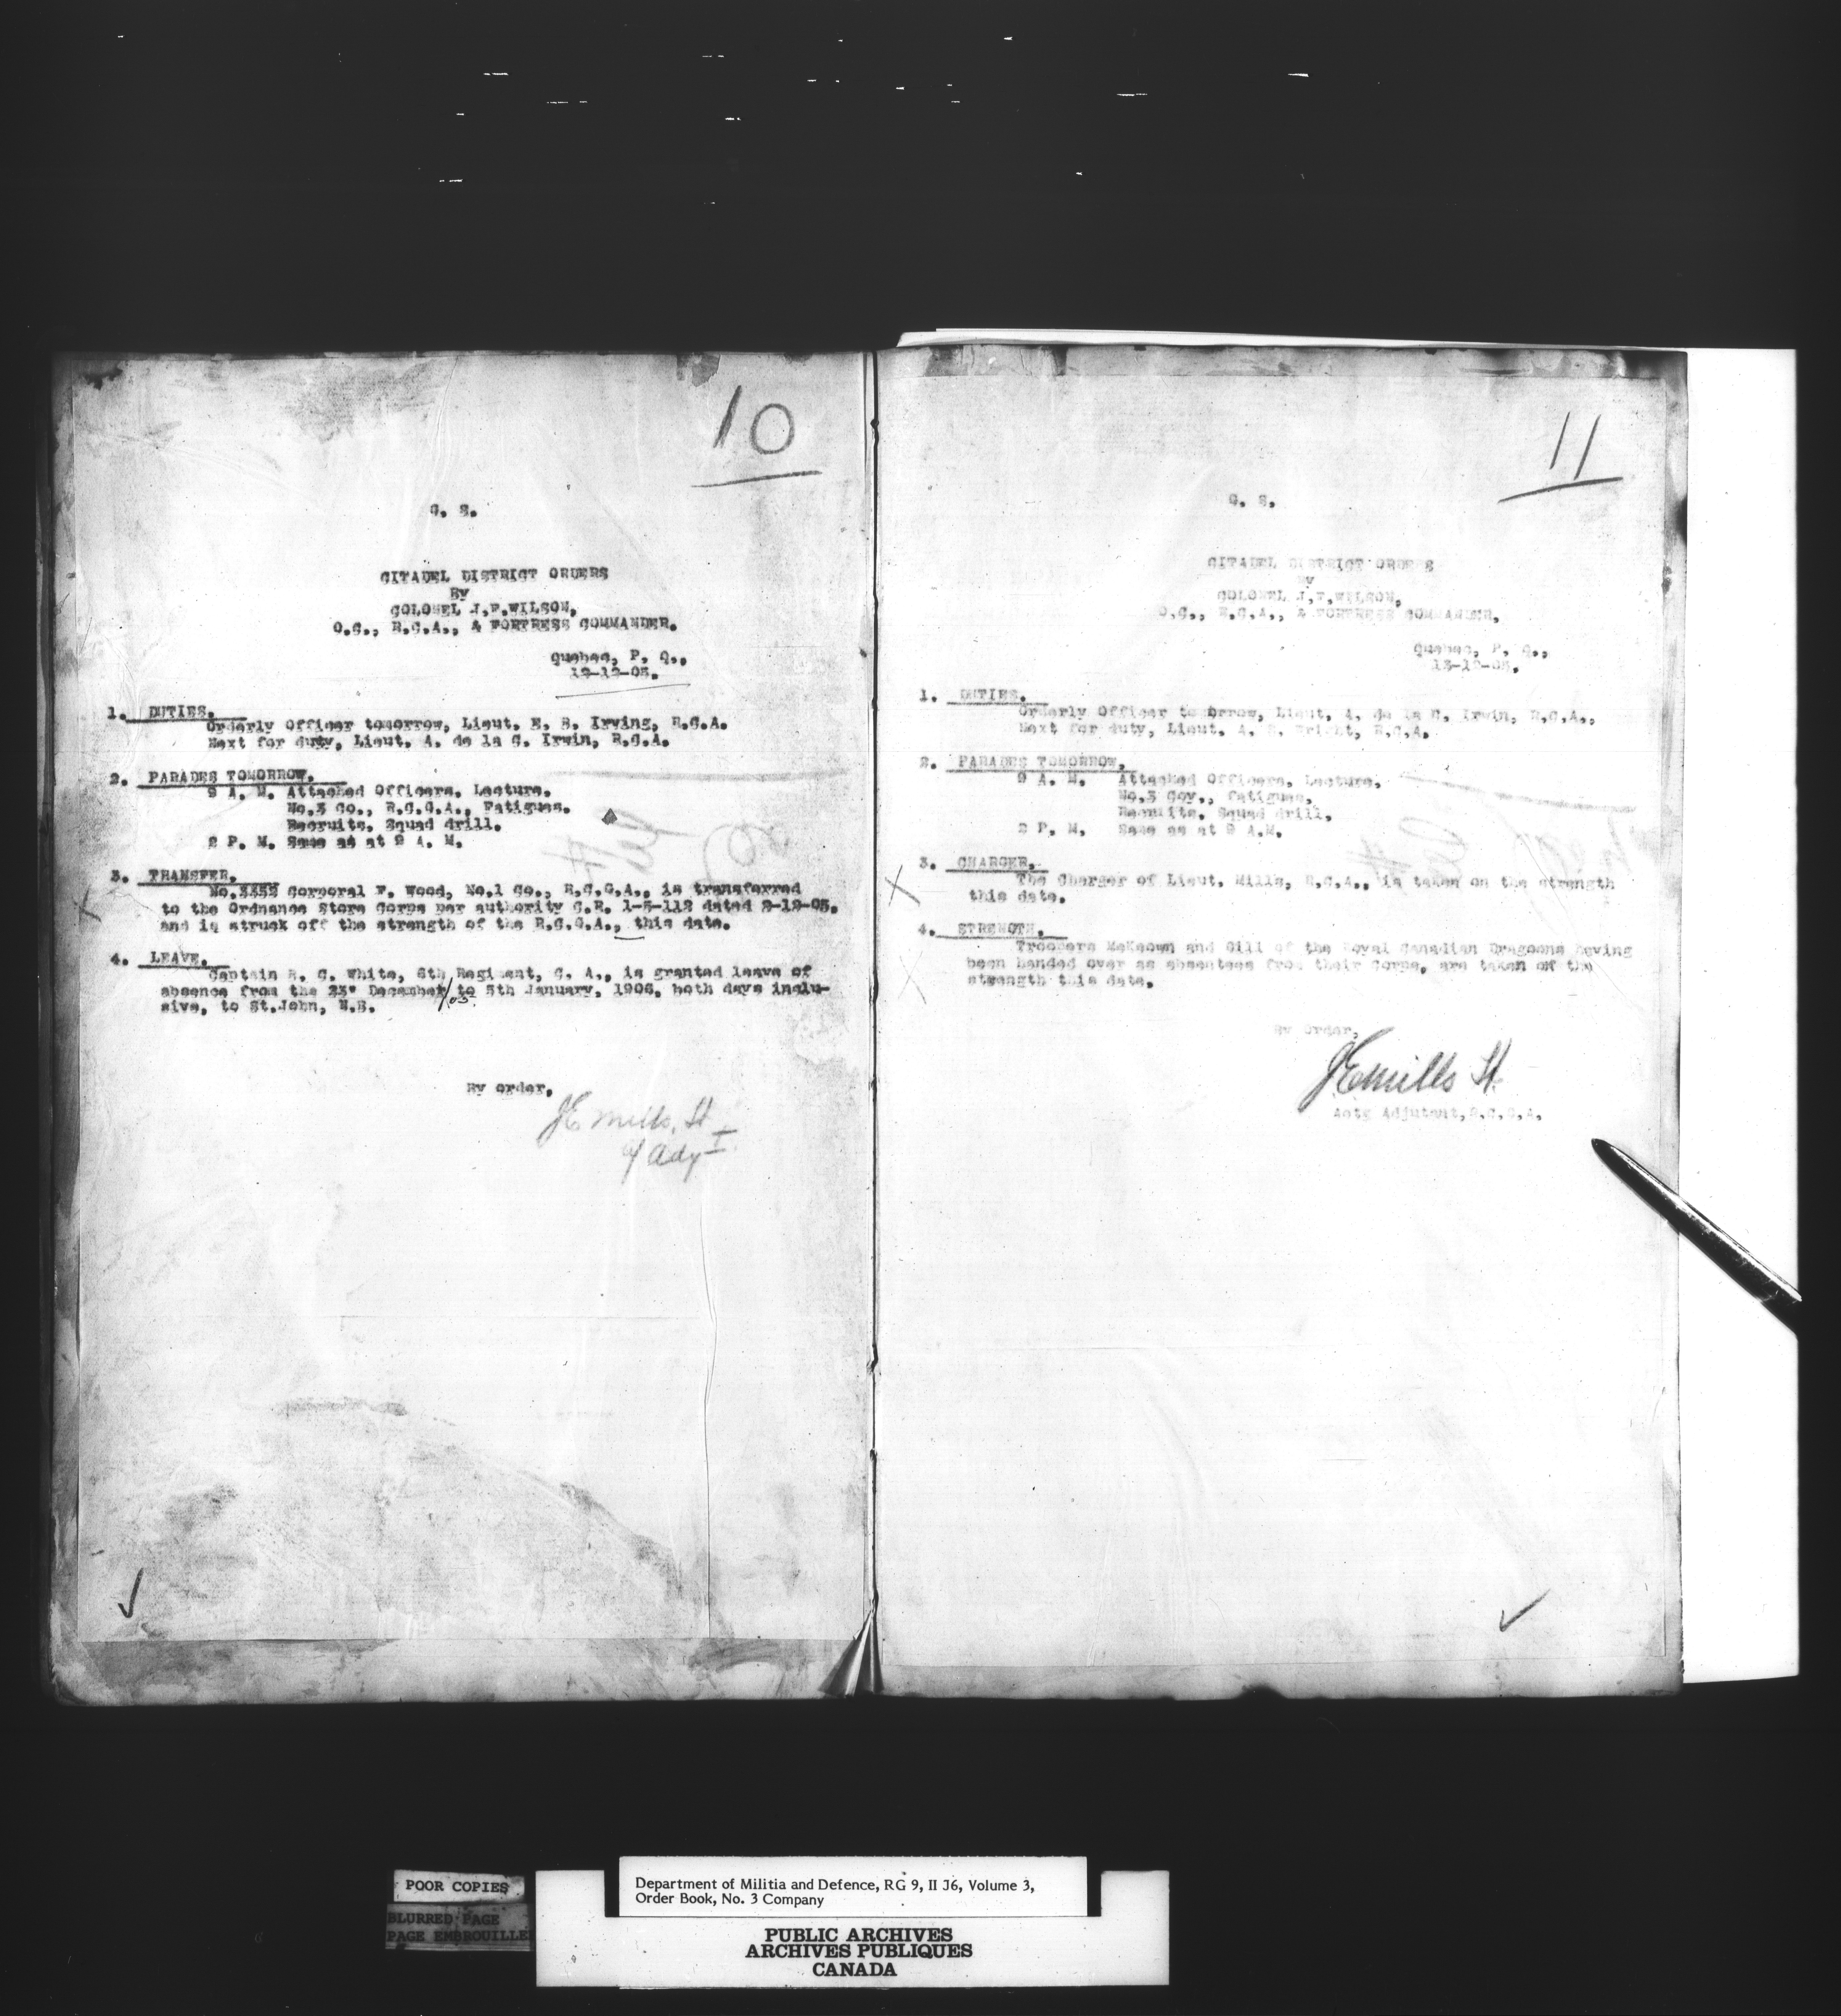 10
C. S.
CITADEL DISTRICT ORDERS
By
COLONEL J.F.WILSON,
O.C., R.C.A., & FORTRESS COMMANDER.
Quebec, P. Q.,
12-12-05.
1. DUTIES.
Orderly Officer tomorrow, Lieut. E. B. Irving, R.C.A.
Next for duty, Lieut. A. de la C. Irwin, R.C.A.
2. PARADES TOMORROW.
9 A. M. Attached Officers. Lecture.
No.3 Co., R.C.G.A., Fatigues.
Recruits. Squad drill.
2 P. M. Same as at 9 A. M.
3. TRANSFER.
No.3352 Corporal F. Wood, No.1 Co., R.C.G.A., is transferred
to the Ordnance Store Corps per authority C.R. 1-5-112 dated 2-12-05.
and is struck off the strength of the R.C.G.A., this date.
4. LEAVE.
Captain R. C. White, 6th Regiment, C. A., is granted leave of
absence from the 23" December/05 to 5th January, 1906, both days inclu-
sive, to St.John, N.B.
By order,
JE Mills, Lt
a/ Adjt
11
C. S.
CITADEL DISTRICT ORDERS
By
COLONEL J.F.WILSON,
O.C., R.C.A., & FORTRESS COMMANDER.
Quebec, P. Q.,
13-12-05.
1. DUTIES.
Orderly Officer tomorrow, Lieut. A. de la C. Irwin, R.C.A.,
Next for duty, Lieut. A. Wright, R.C.A.
2. PARADES TOMORROW.
9 A. M. Attached Officers. Lecture.
No.3 Coy., fatigues.
Recruits. Squad drill.
2 P. M. Same as at 9 A.M.
3. CHARGER.
The Charger of Lieut. Mills, R.C.A., is taken on the strength
this date.
4. STRENGTH.
Troopers McKeown and Gill of the Royal Canadian Dragoons having
been handed over as absentees from their Corps, are taken on the
strength this date.
By Order,
JE Mills Lt.
Actg Adjutant, R.C.G.A.
POOR COPIES
BLURRED PAGE
PAGE EMBROUILLE
Department of Militia and Defence, RG 9, II J6, Volume 3,
Order Book, No. 3 Company
PUBLIC ARCHIVES
ARCHIVES PUBLIQUES
CANADA